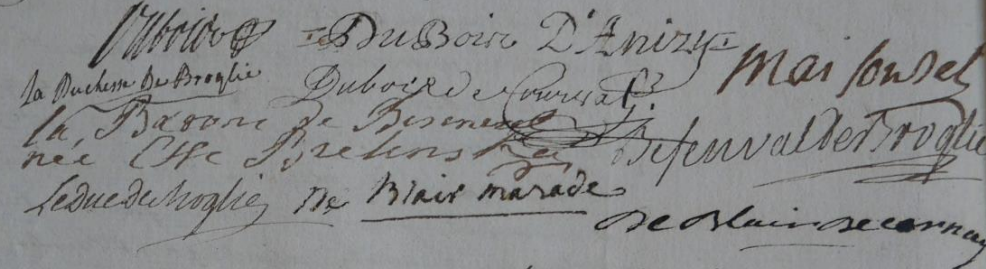 Dubois DuBois D'Anizy
Maisonsel
la Duchesse De Broglie Dubois de Courval
la Baronne de Besenval
née Csse Bielinska Besenval de Broglie
Le Duc de Broglie De Blair marade
De Blair De cernay